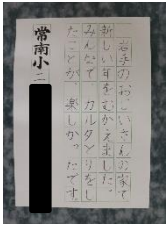 岩手のおじいさんの家で
新しい年をむかえました。
みんなで、カルタとりをし
たことが、楽しかったです。
常南小二